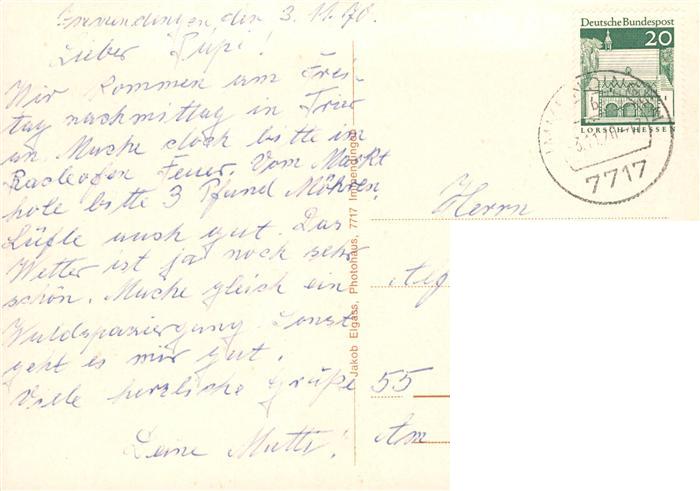 den 3.11.70.
Lieber Püpi!
Wir kommen am Frei-
tag nachmittag in Trier
an. Mache doch bitte im
Badeofen Feuer. Vom Markt
hole bitte 3 Pfund Möhren.
Lüfte auch gut. Das
Wetter ist ja noch sehr
schön. Mache gleich ein
Waldspaziergang. Sonst
geht es mir gut.
Viele herzliche Grüße
Deine Mutti!
Jakob Elgass, Photohaus, 7717 Immendingen
Deutsche Bundespost
20
LORSCH/HESSEN
3.11.70
7717
Herrn
55
Am